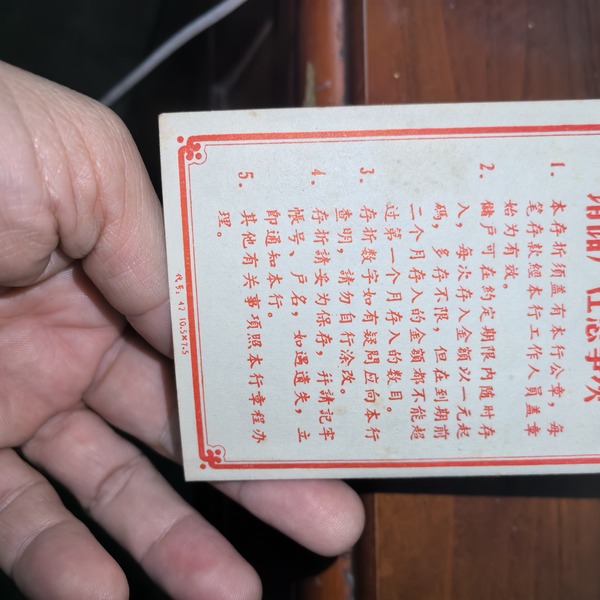 請儲戶注意事項
1. 本存折須盖有本行公章，每
笔存款經本行工作人員盖章
始为有效。
2. 儲戶可在約定期限内随时存
入，每次存入金額以一元起
碼，多存不限，但在到期前
二个月存入的金額都不能超
过第一个月存入的数目。
3. 存折数字如有疑問应向本行
查明，請勿自行涂改。
4. 存折請妥为保存，并請記牢
帳号、户名，如遇遺失，立
即通知本行。
5. 其他有关事項照本行章程办
理。
代号：42 10.5×7.5